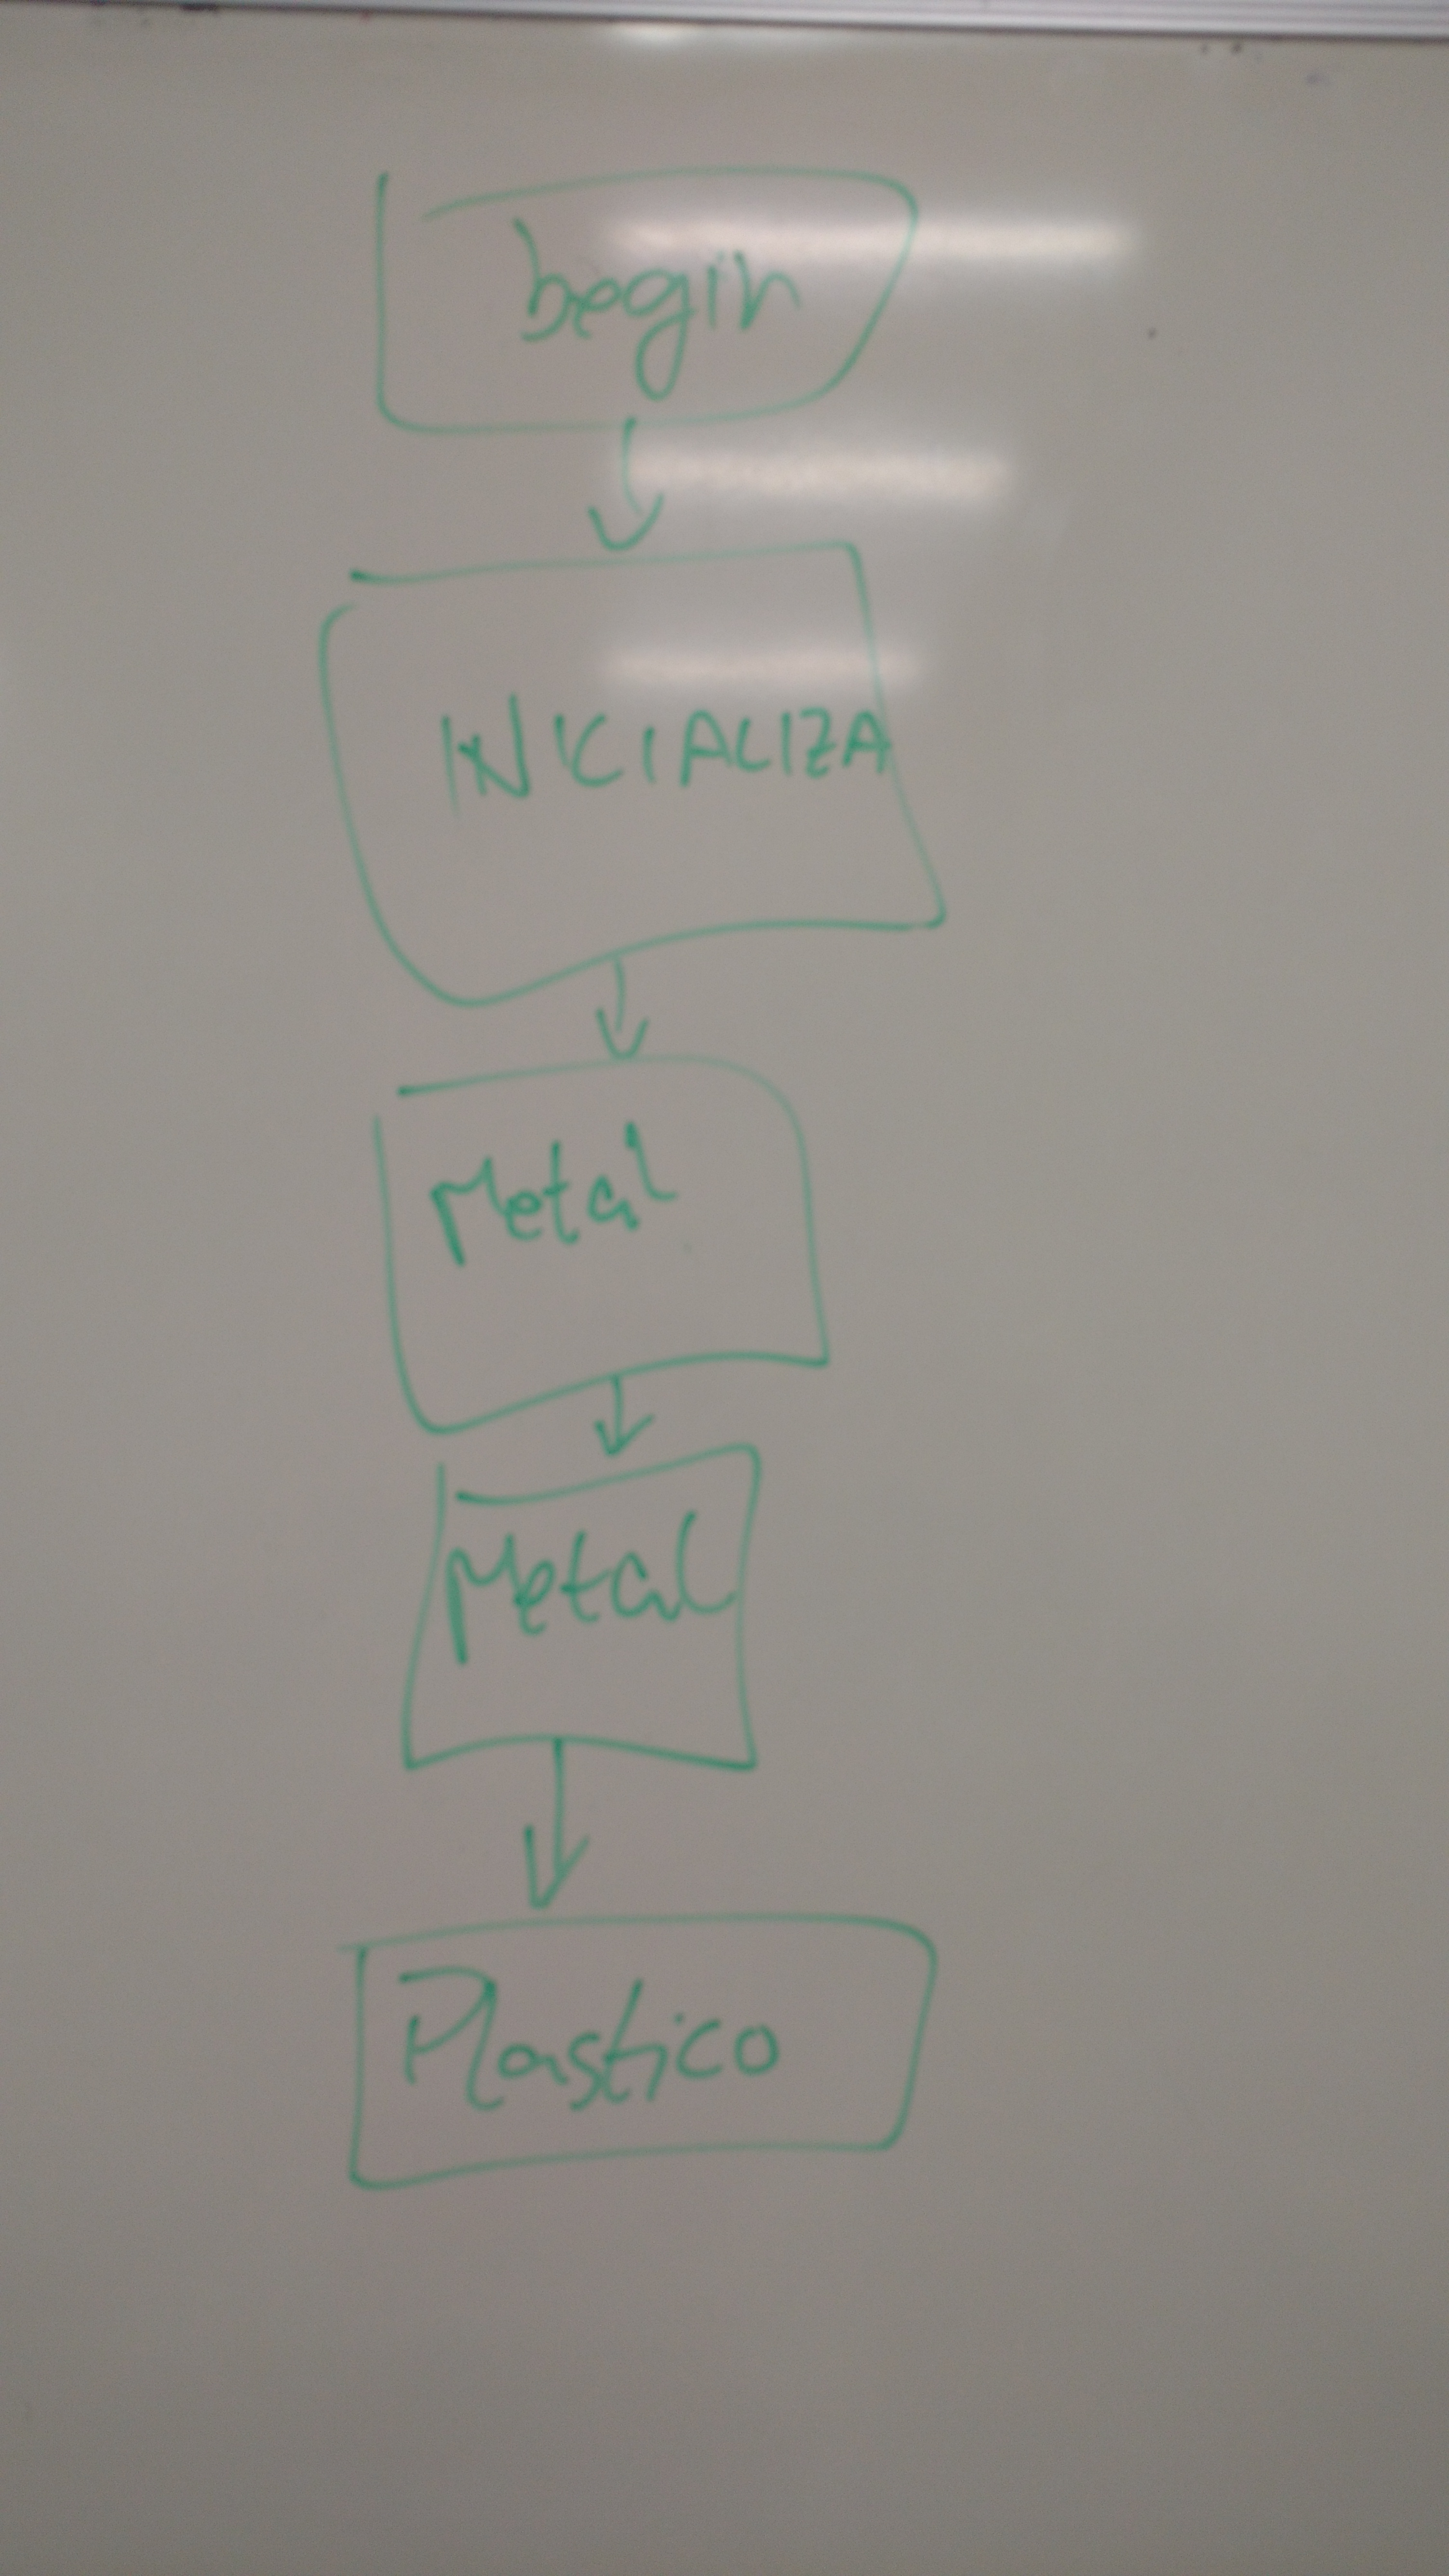 begin
INICIALIZA
Metal
Metal
Plastico